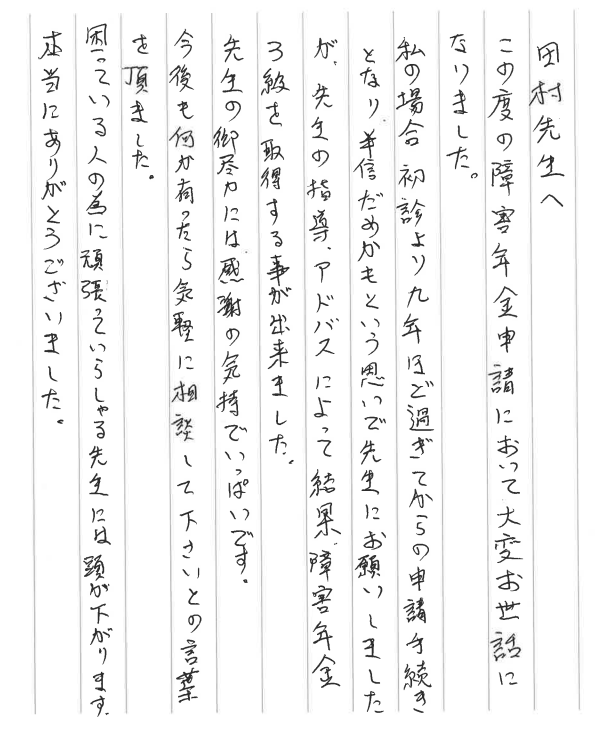 田村先生へ
この度の障害年金申請において大変お世話に
なりました。
私の場合初診より九年ほど過ぎてからの申請手続き
となり半信だめかもという思いで先生にお願いしました
が、先生の指導、アドバスによって結果、障害年金
3級を取得する事が出来ました。
先生の御尽力には感謝の気持でいっぱいです。
今後も何か有ったら気軽に相談して下さいとの言葉
を頂ました。
困っている人の為に頑張っていらしゃる先生には頭が下がります。
本当にありがとうございました。